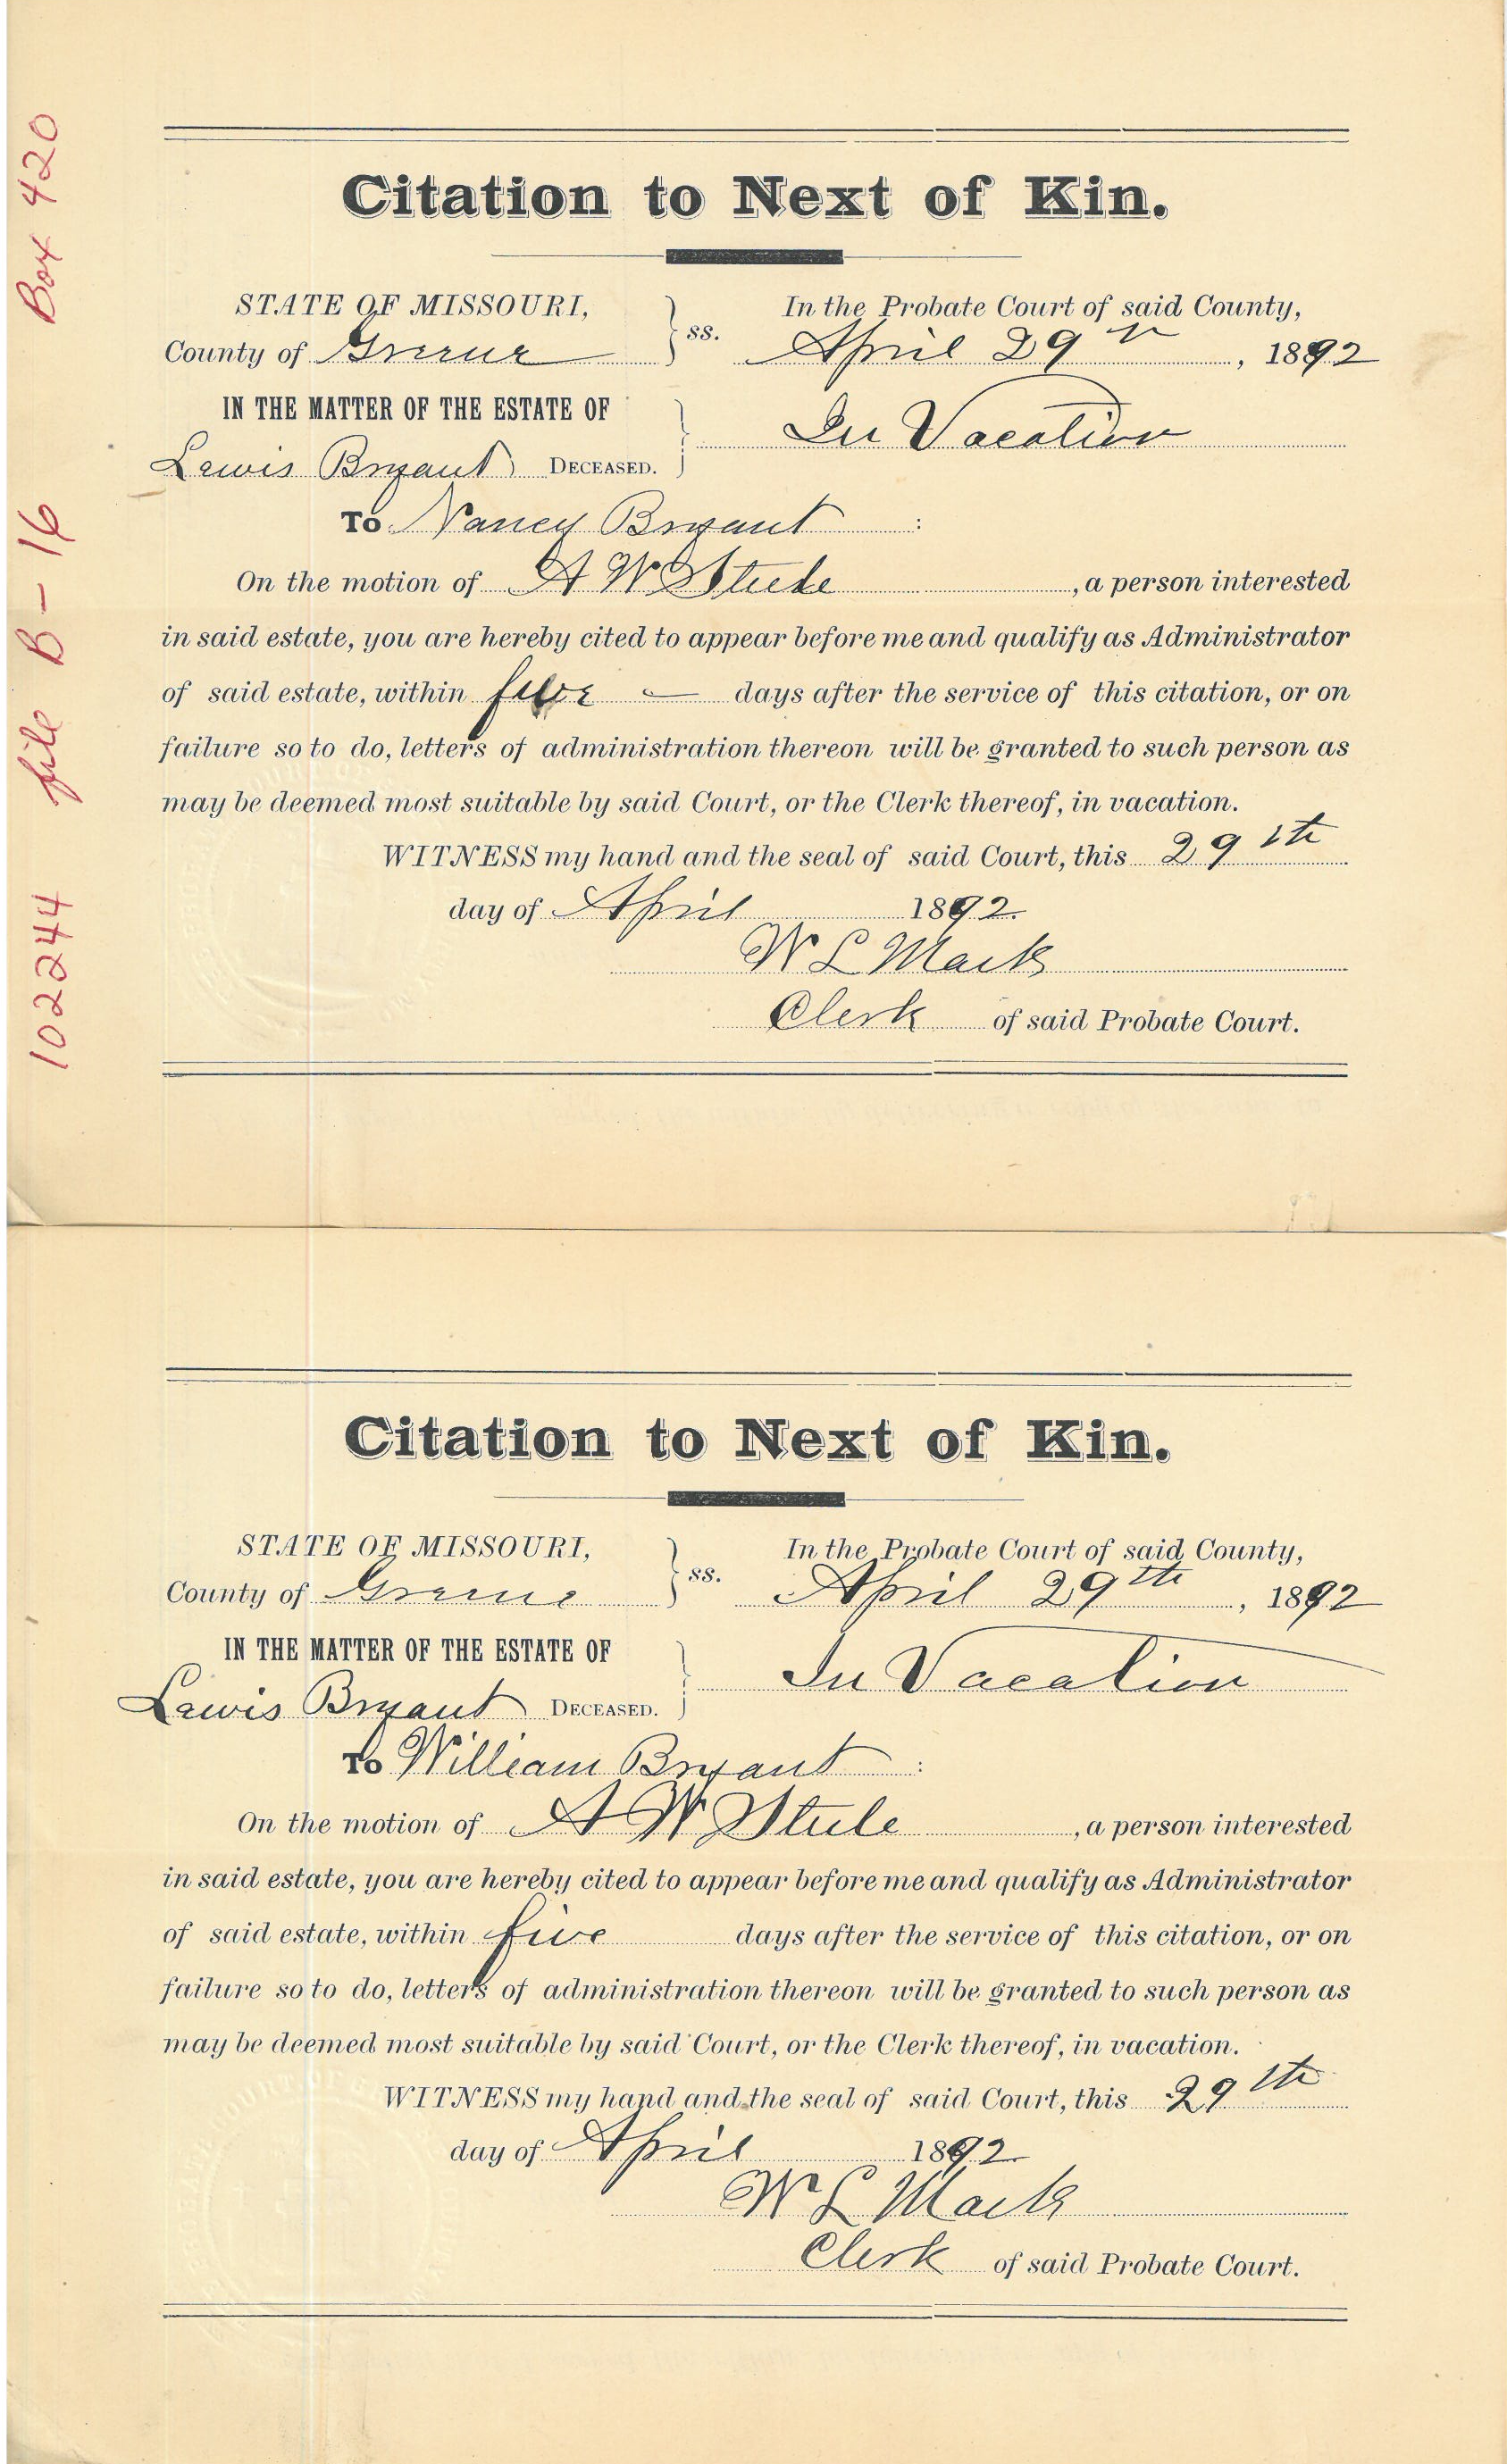 Box 420
file B-16
102244
Citation to Next of Kin.
STATE OF MISSOURI,
County of Greene
ss.
In the Probate Court of said County,
April 29th, 1892
IN THE MATTER OF THE ESTATE OF
Lewis Bryant DECEASED.
In Vacation
To Nancy Bryant :
On the motion of A W Steele, a person interested
in said estate, you are hereby cited to appear before me and qualify as Administrator
of said estate, within five — days after the service of this citation, or on
failure so to do, letters of administration thereon will be granted to such person as
may be deemed most suitable by said Court, or the Clerk thereof, in vacation.
WITNESS my hand and the seal of said Court, this 29th
day of April 1892.
W L Mack
Clerk of said Probate Court.
Citation to Next of Kin.
STATE OF MISSOURI,
County of Greene
ss.
In the Probate Court of said County,
April 29th, 1892
IN THE MATTER OF THE ESTATE OF
Lewis Bryant DECEASED.
In Vacation
To William Bryant :
On the motion of A W Steele, a person interested
in said estate, you are hereby cited to appear before me and qualify as Administrator
of said estate, within five days after the service of this citation, or on
failure so to do, letters of administration thereon will be granted to such person as
may be deemed most suitable by said Court, or the Clerk thereof, in vacation.
WITNESS my hand and the seal of said Court, this 29th
day of April 1892
W L Mack
Clerk of said Probate Court.